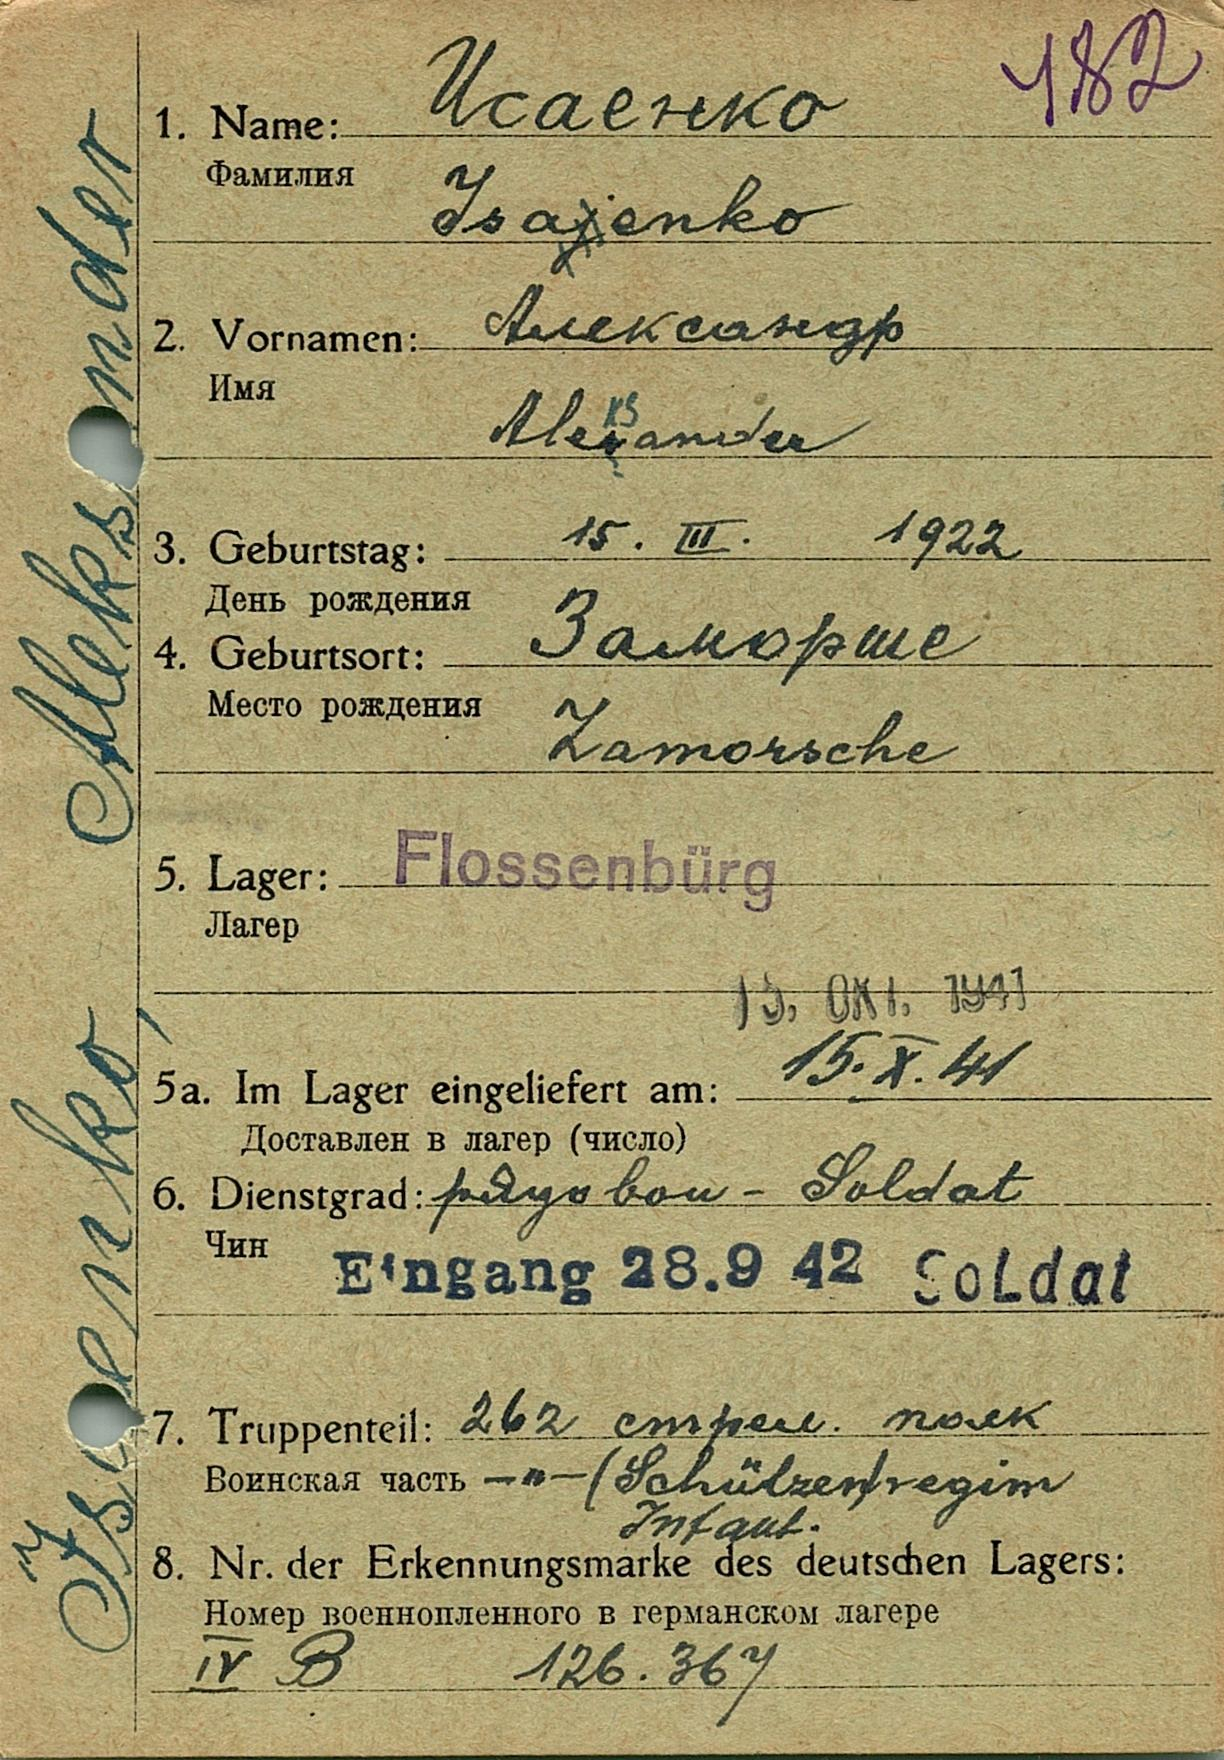 182
1. Name: Исаенко
Фамилия
Isajenko
2. Vornamen: Александр
Имя
Alexander
ks
3. Geburtstag: 15. III. 1922
День рождения
4. Geburtsort: Заморше
Место рождения
Zamorsche
5. Lager: Flossenbürg
Лагер
15. OKT. 1941
5a. Im Lager eingeliefert am: 15. X. 41
Доставлен в лагер (число)
6. Dienstgrad: рядовои - Soldat
Чин
Eingang 28.9 42 Soldat
7. Truppenteil: 262 стрел. полк
Воинская часть -"- (Schützen)regim
Infant.
8. Nr. der Erkennungsmarke des deutschen Lagers:
Номер военнопленного в германском лагере
IV B 126.367
Isaenko, Aleksander